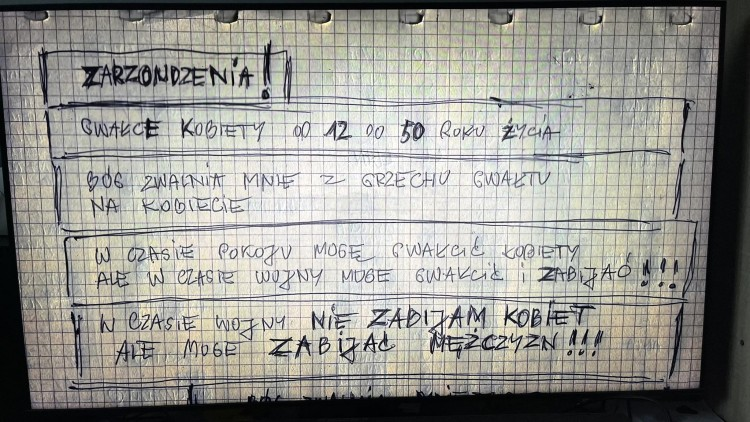 ZARZONDZENIA!
GWAŁCE KOBIETY OD 12 DO 50 ROKU ŻYCIA
BÓG ZWALNIA MNIE Z GRZECHU GWAŁTU
NA KOBIECIE
W CZASIE POKOJU MOGĘ GWAŁCIĆ KOBIETY
ALE W CZASIE WOJNY MOGE GWAŁCIĆ I ZABIJAĆ!!!
W CZASIE WOJNY NIE ZABIJAM KOBIET
ALE MOGE ZABIJAĆ MĘŻCZYZN!!!